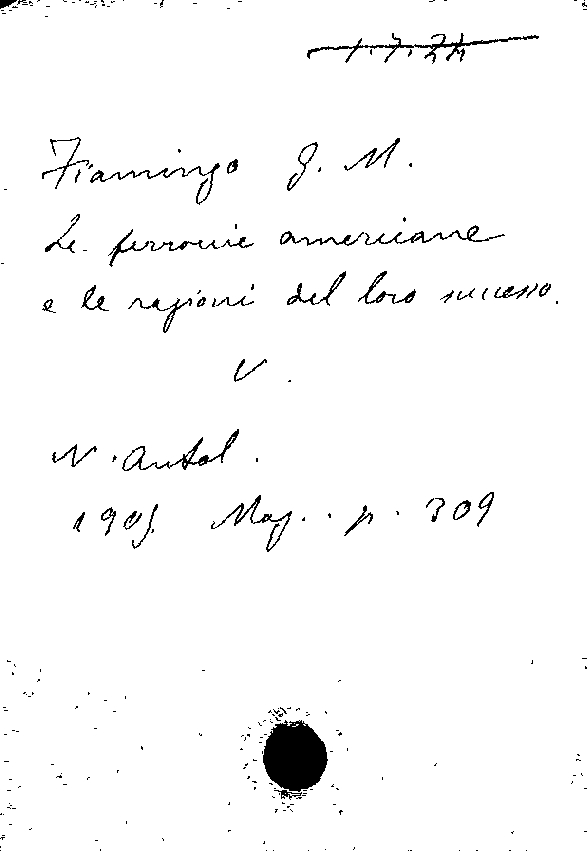 1.7.24
Fiamingo G. M.
Le ferrovie americane
e le ragioni del loro successo.
V.
N. Antol.
1905. Mag. p. 309